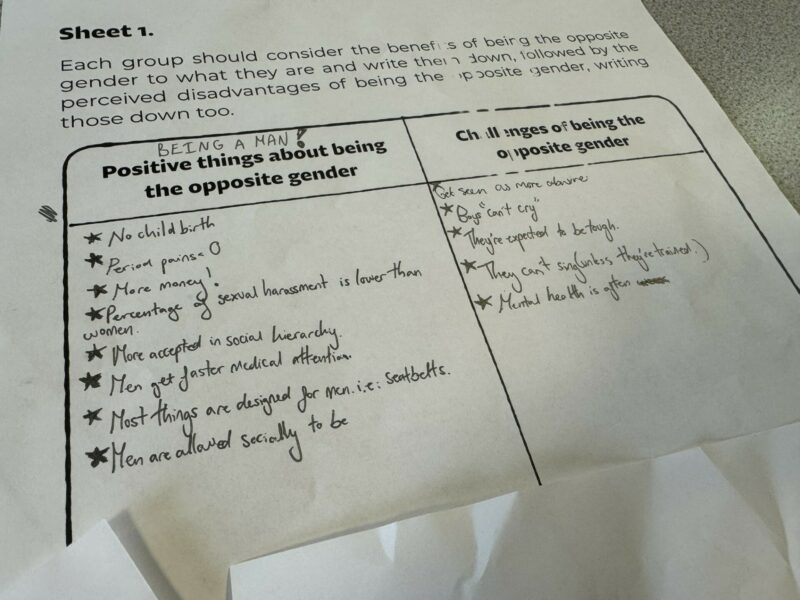 Sheet 1.
Each group should consider the benefits of being the opposite
gender to what they are and write them down, followed by the
perceived disadvantages of being the opposite gender, writing
those down too.
BEING A MAN!
Positive things about being
the opposite gender
★ No child birth
★ Period pains = 0
★ More money!
★ Percentage of sexual harassment is lower than
women.
★ More accepted in social hierarchy.
★ Men get faster medical attention.
★ Most things are designed for men. i.e: seatbelts.
★ Men are allowed socially to be
Challenges of being the
opposite gender
Get seen as more
★ Boys "can't cry"
★ They're expected to be tough.
★ They can't sing (unless they're trained.)
★ Mental health is often